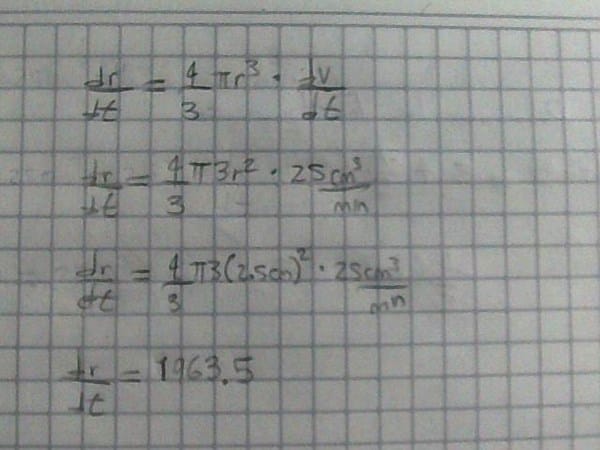 dr/dt = 4/3 πr³ · dv/dt
dr/dt = 4/3 π3r² · 25 cm³/mn
dr/dt = 4/3 π3(2.5cm)² · 25cm³/mn
dr/dt = 1963.5